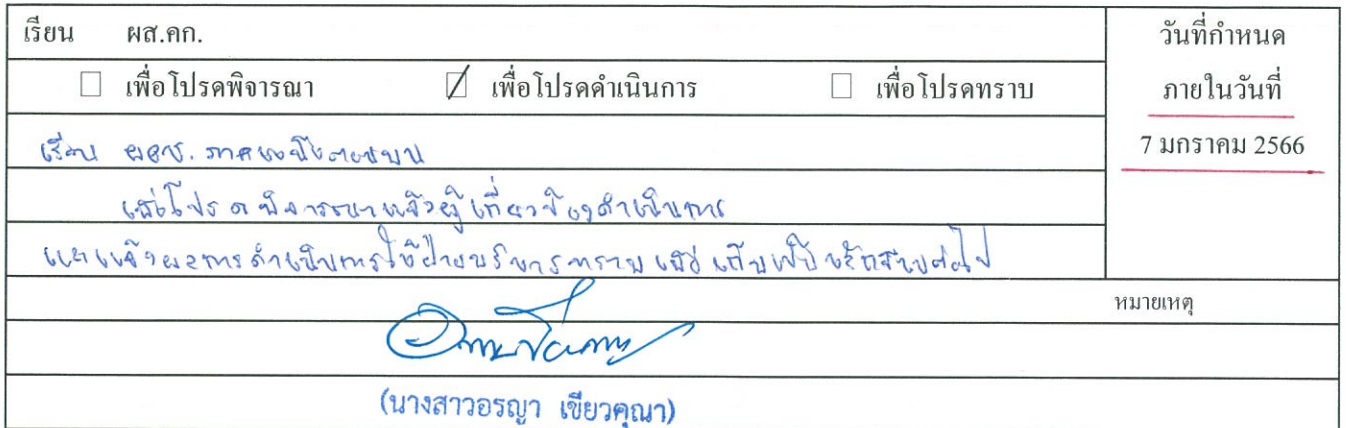 เรียน ผส.คก.
วันที่กำหนด
☐ เพื่อโปรดพิจารณา ☑ เพื่อโปรดดำเนินการ ☐ เพื่อโปรดทราบ
ภายในวันที่
7 มกราคม 2566
เรียน ผอช. ภาคเหนือตอนบน
เพื่อโปรดพิจารณาแจ้งผู้เกี่ยวข้องดำเนินการ
และแจ้งผลการดำเนินการให้ฝ่ายบริหารทราบ เพื่อเก็บเป็นหลักฐานต่อไป
หมายเหตุ
(นางสาวอรญา เขียวคุณา)